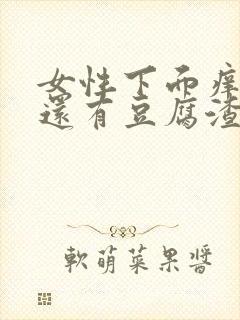 女性下面痒
還有豆腐渣
軟萌菜果醬